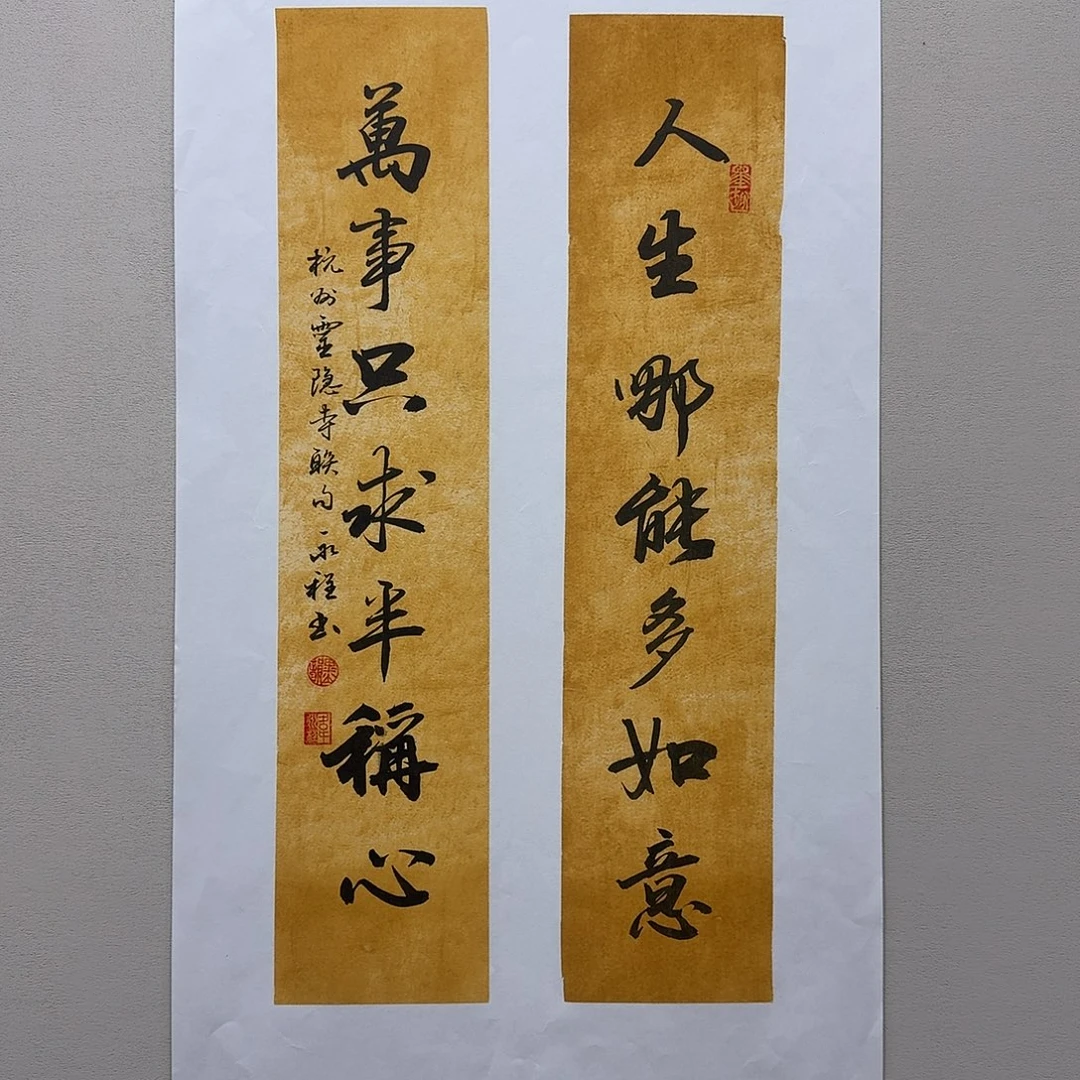 人生哪能多如意
萬事只求半稱心
杭州靈隐寺联句永程书